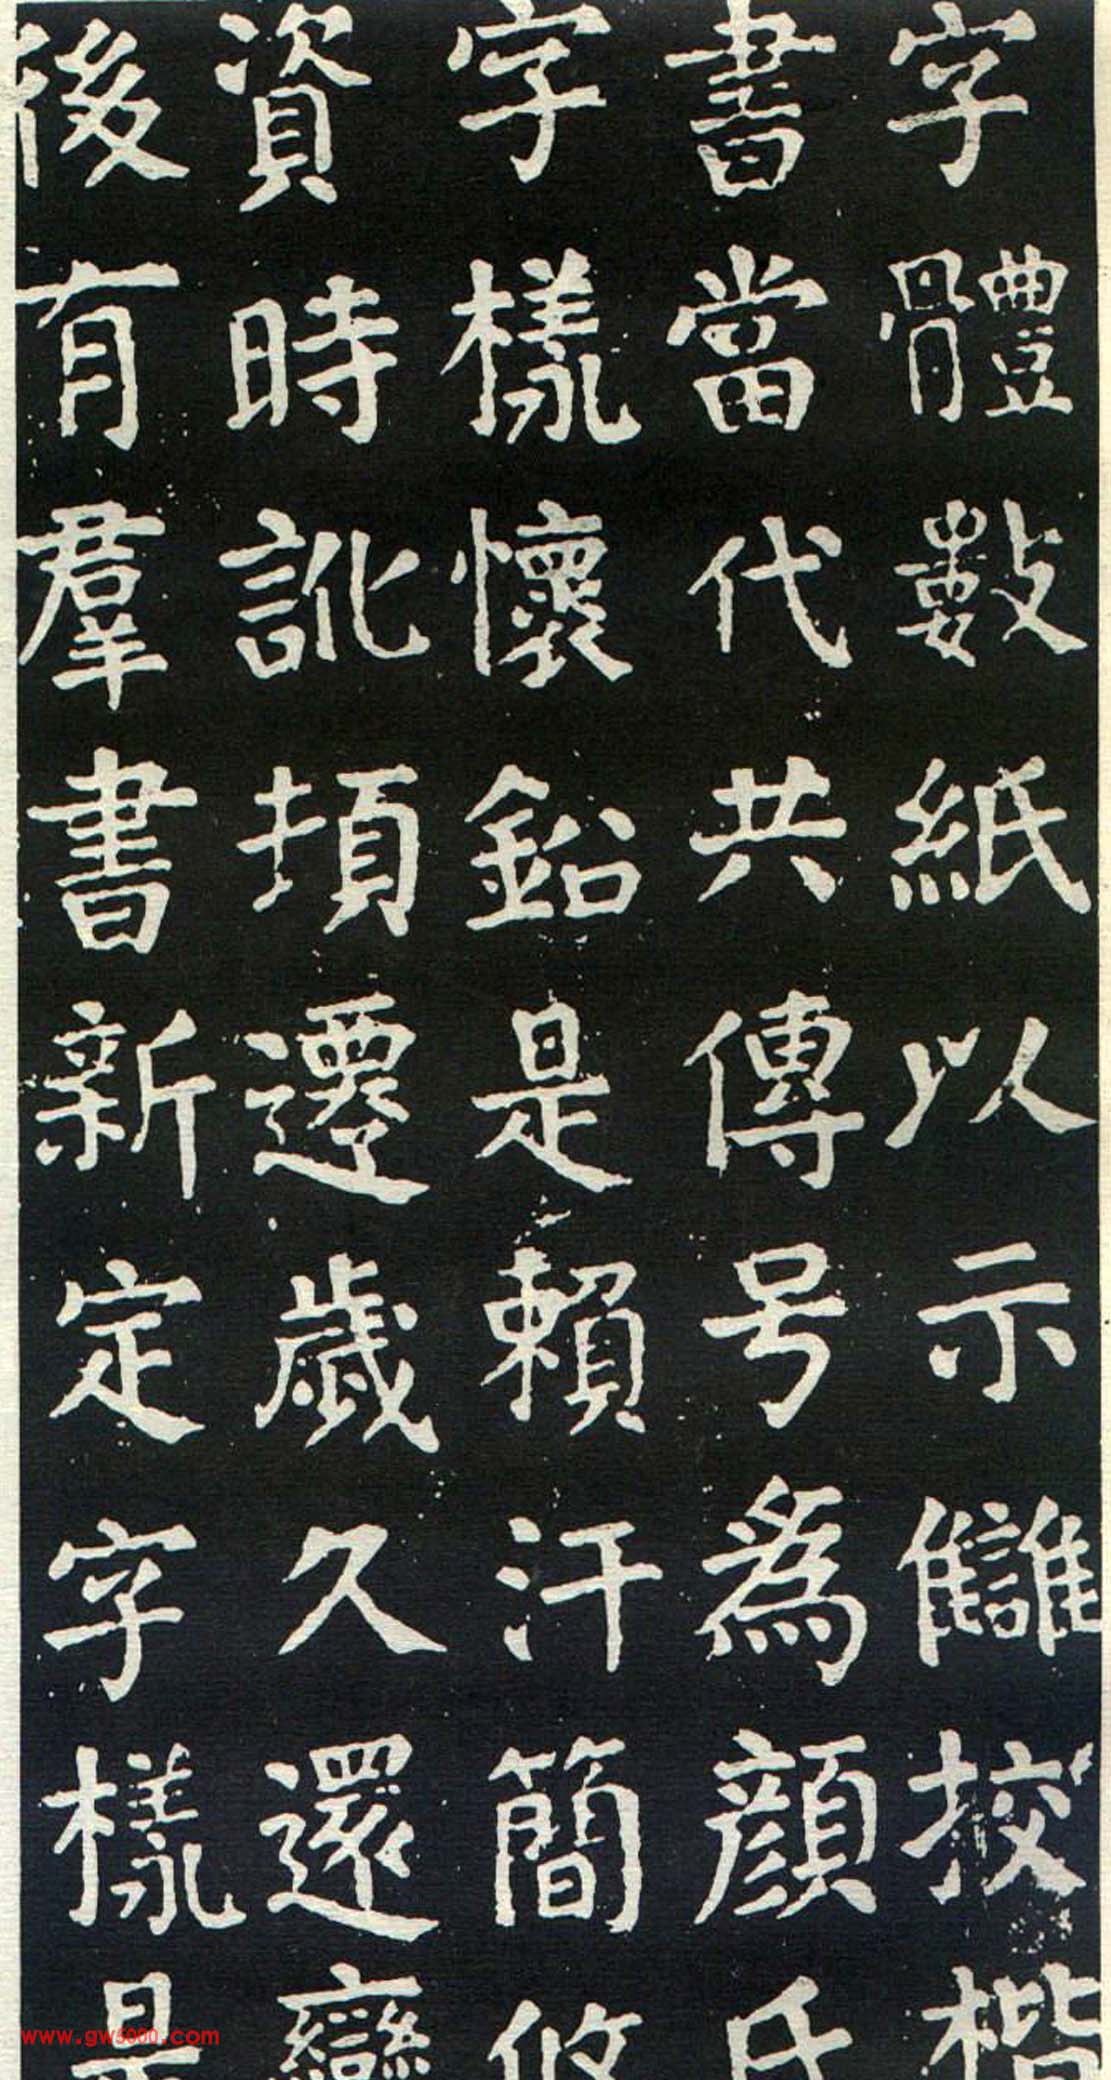 字體數紙以示讎挍楷
書當代共傳号為顔氏
字樣懷鈆是賴汗簡攸
資時訛頓遷歲久還變
後有羣書新定字樣是
www.gw5000.com